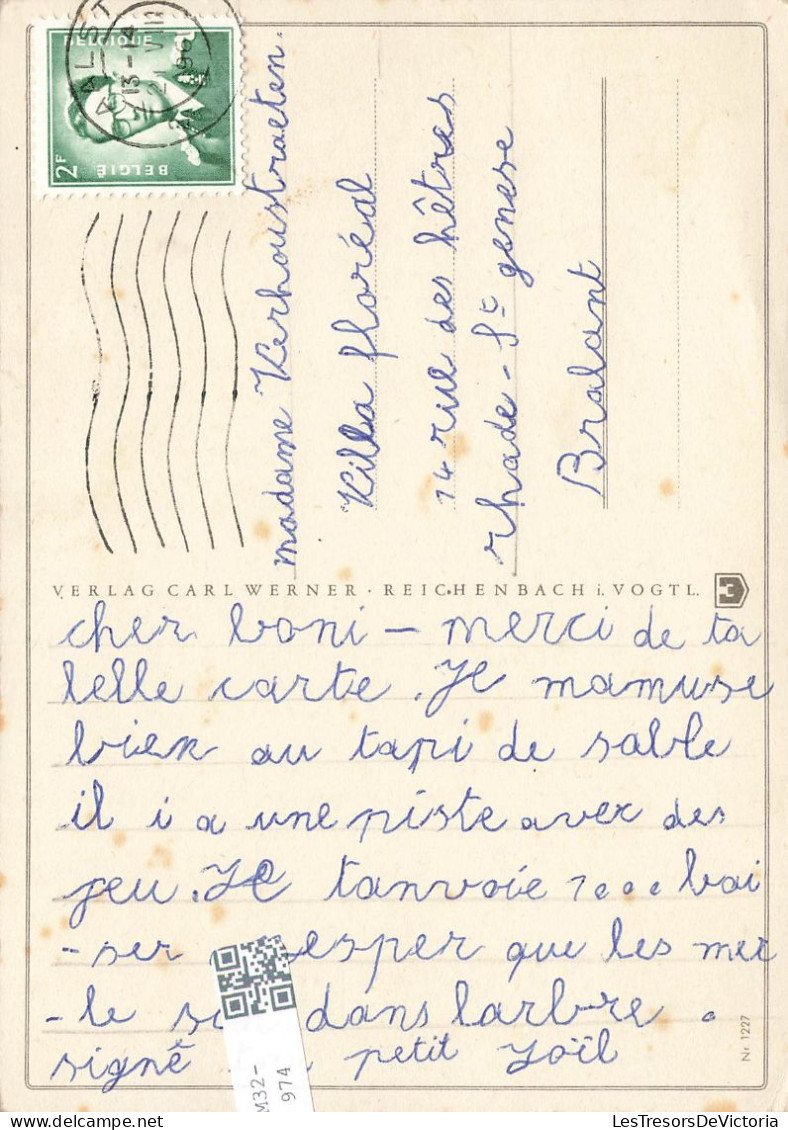 AALST
13-14
BELGIQUE
BELGIË
2F
madame Kerhoustraeten.
Killa floréal
14 rue des hêtres
rhade - St genese
Bralant
VERLAG CARL WERNER · REICHENBACH i. VOGTL.
cher boni — merci de ta
belle carte. Je mamuse
bien au tapi de sable
il i a une piste aver des
jeu. Je tanvoie 1000 bai
-ser esper que les mer
-le dans larbre.
signé petit Joïl
Nr. 1227
M32-
974
LesTresorsDeVictoria
LesTresorsDeVictoria.com